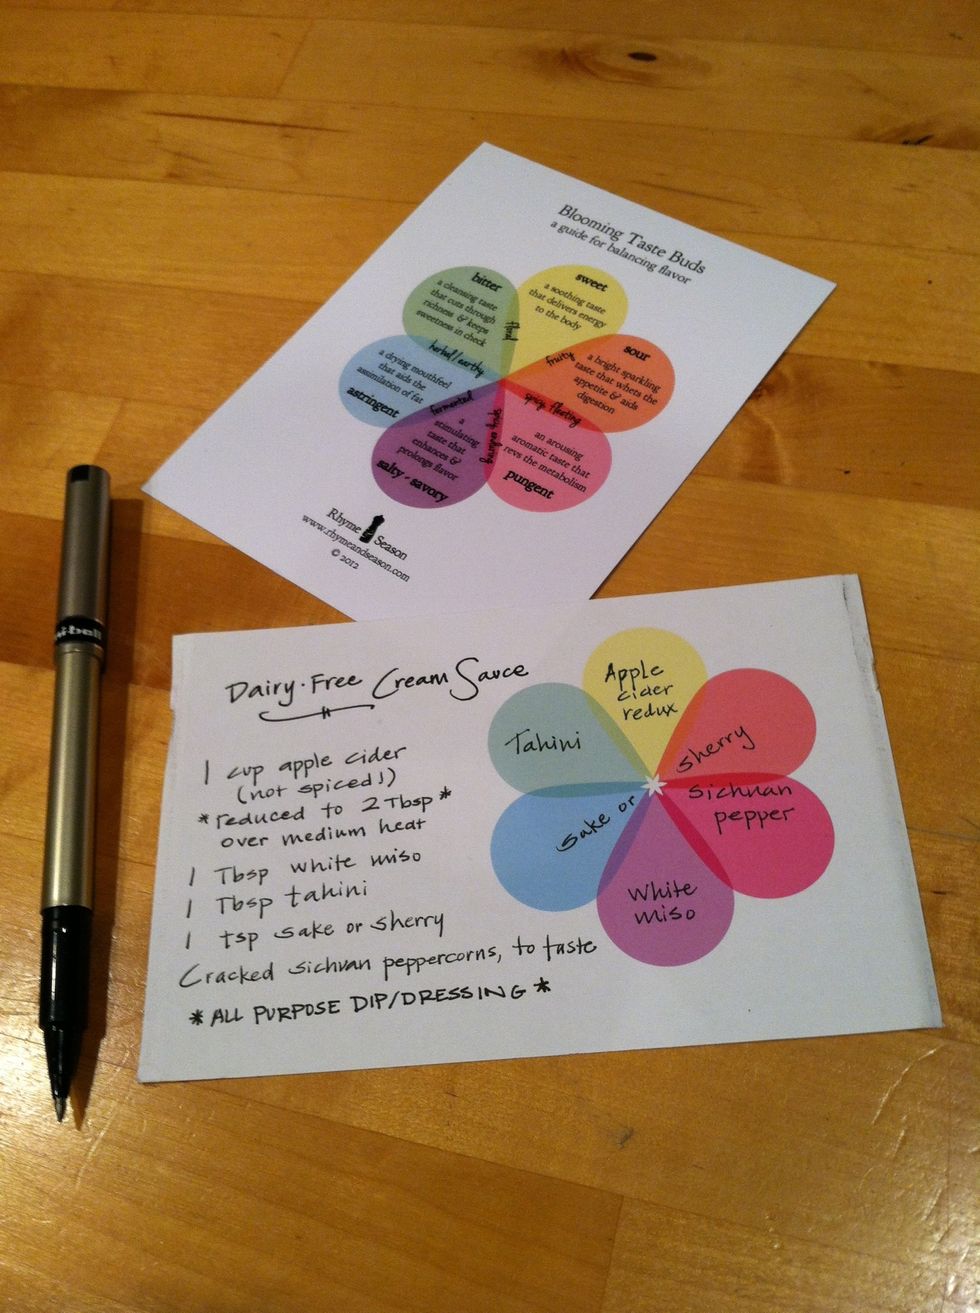 Blooming Taste Buds
a guide for balancing flavor
bitter
a cleansing taste
that cuts through
richness & keeps
sweetness in check
floral
sweet
a soothing taste
that delivers energy
to the body
sour
a bright sparkling
taste that whets the
appetite & aids
digestion
fruity
herbal/earthy
a drying mouthfeel
that aids the
assimilation of fat
astringent
fermented
a
stimulating
taste that
enhances &
prolongs flavor
salty-savory
spicy
an arousing
aromatic taste that
revs the metabolism
pungent
Rhyme & Season
www.rhymeandseason.com
© 2012
Dairy-Free Cream Sauce
1 cup apple cider
(not spiced!)
*reduced to 2 Tbsp*
over medium heat
1 Tbsp white miso
1 Tbsp tahini
1 tsp sake or sherry
Cracked sichuan peppercorns, to taste
*ALL PURPOSE DIP/DRESSING*
Apple
cider
redux
Tahini
sherry
sichuan
pepper
sake or
White
miso
uni-ball